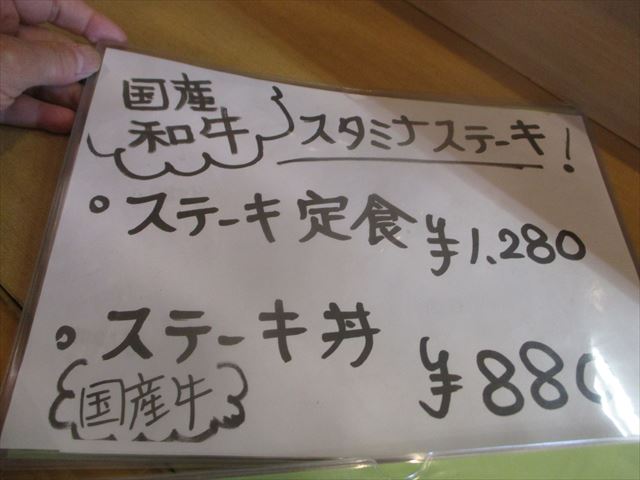 国産
和牛
スタミナステーキ!
。ステーキ定食 ¥1,280
。ステーキ丼 ¥880
国産牛